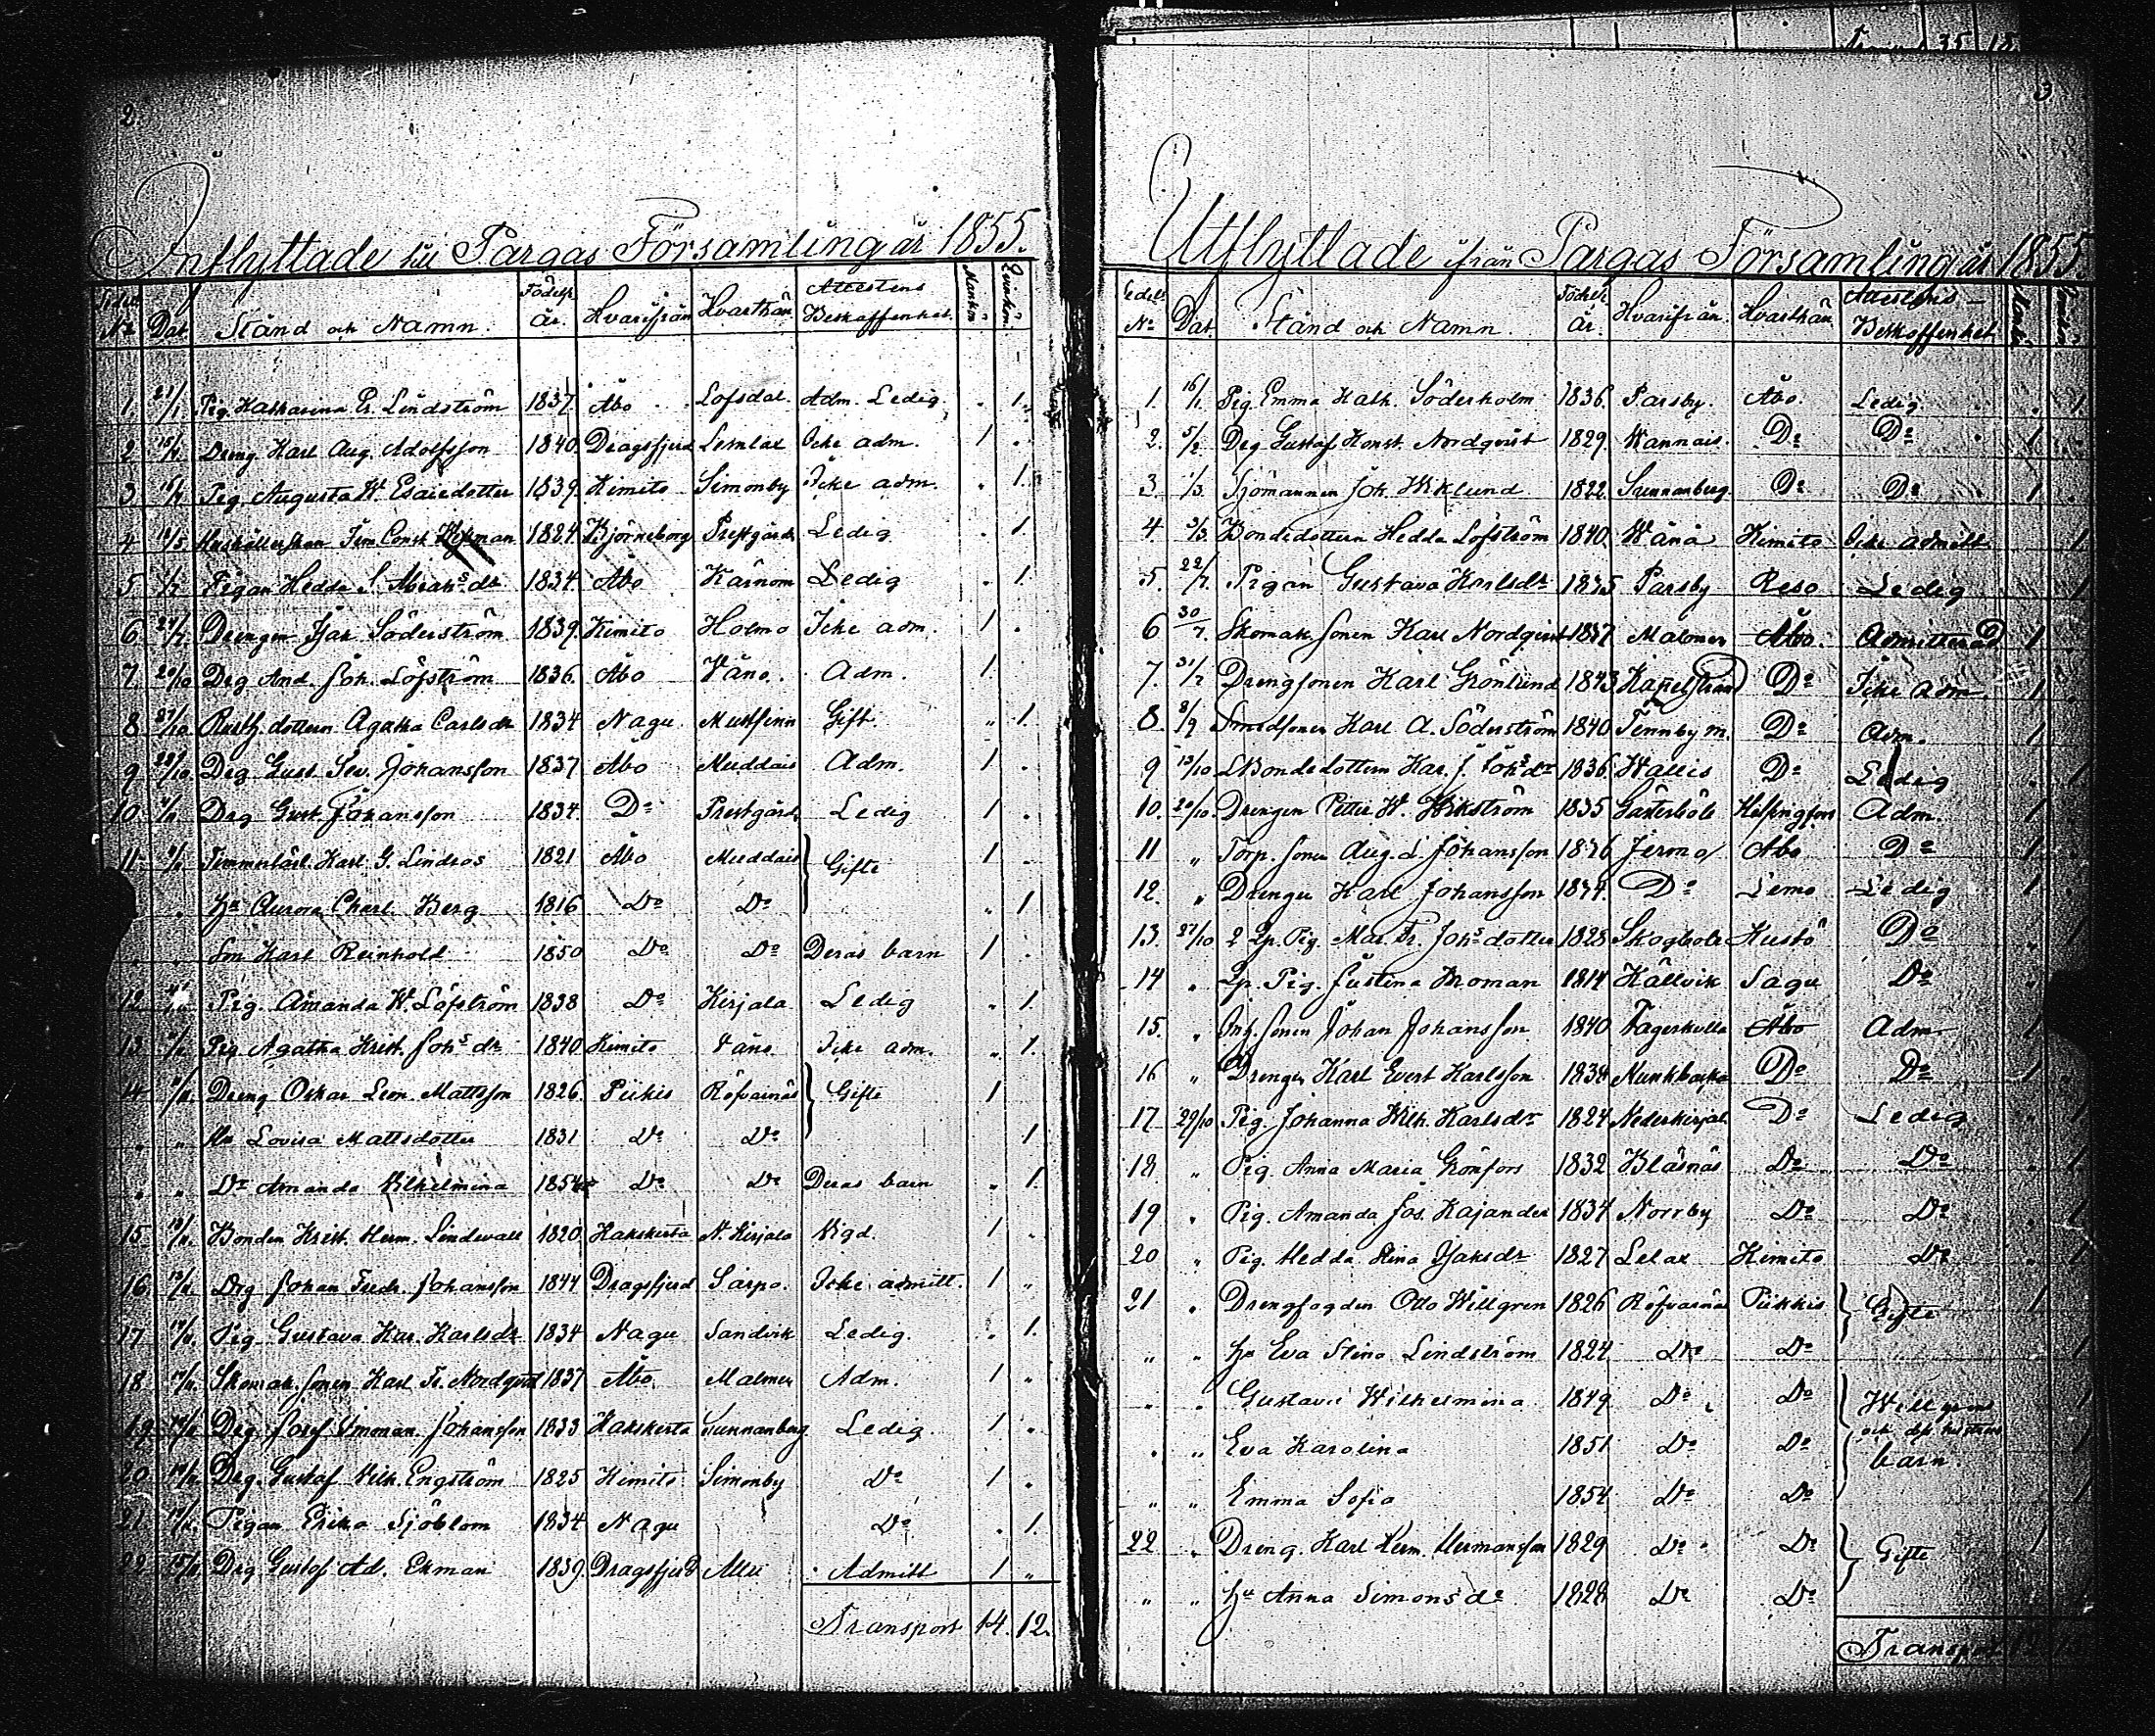 2
Inflyttade till Pargas Församling år 1855.
Sedel No Dat. Stånd och Namn. Födelse år. Hvarifrån Hvarthän Attestens Beskaffenhet. Mankön. Qvinkön.
1. 21/1 Pig. Katharina Lindström 1837 Åbo Lofsdal Adm. Ledig . 1.
2 Dreng Karl Aug. Adolfsson 1840. Dragsfjerd Lemlax Icke adm. 1 .
3 Pig. Augusta W. Esaiedotter 1839. Kimito Simonby Icke adm. . 1.
4 Hushållerskan 1824 Björneborg Prestgård Ledig . 1.
5 Pigan Hedda S. Abrahsdr 1834 Åbo Kårnom Ledig . 1.
6 Drengen Isak Söderström 1839. Kimito Holmo Icke adm. 1 .
7. 20/10 Drg And. Joh. Löfström 1836. Åbo Vånå. Adm. 1.
8 27/10 dottern Agatha Carlsdr 1834 Nagu Gift „ 1.
9 28/10 Drg Gust. Sev. Johansson 1837 Åbo Muddais Adm. 1 .
10 Drg Gust. Johansson 1834. Do Prestgård Ledig 1 .
11 Karl G. Lindros 1821 Åbo Muddais Gifte 1 .
. Hu Aurora Charl. Berg 1816 Do Do „ 1
. Son Karl Reinhold 1850 Do Do Deras barn 1 .
12 Pig. Amanda W. Löfström 1838 Do Kirjala Ledig . 1.
13 Pig Agatha Krist. Johsdr 1840 Kimito Vånå Icke adm. „ 1.
14 Dreng Oskar Leon. Mattsson 1826. Piikis Röfvarnäs Gifte 1
„ „ Hu Lovisa Mattsdotter 1831 Do Do 1
„ „ Dr Amanda Vilhelmina 1854 Do Do Deras barn „ 1.
15. Bonden Krist. Herm. Lindevall 1820. Kakskerta N. Kirjala Vigd. 1 .
16. Drg Johan Fredr. Johansson 1844 Dragsfjerd Sarpo. Icke admitt. 1 „
17 Pig. Gustava Kar. Karlsdr 1834 Nagu Sandvik Ledig. . 1.
18 Skomak. sonen Karl Fr. Nordqvist 1837 Åbo. Malmen Adm. 1 „
19. Drg. Josef Imman. Johansson 1833 Kakskerta Sunnanberg Ledig. 1 .
20. Drg. Gustaf Vilh. Engström 1825 Kimito Simonby Do 1 .
21. Pigan Erika Sjöblom 1834 Nagu Do . 1.
22 Drg Gustaf Ad. Ekman 1839. Dragsfjerd Admitt 1 „
Transport 14. 12.
3
Utflyttade ifrån Pargas Församling år 1855.
Sedels No Dat. Stånd och Namn. Födelse år. Hvarifrån. Hvarthän Attestens Beskaffenhet
1. 16/1 Pig. Emma Kath. Söderholm 1836. Parsby. Åbo. Ledig. . 1
2. 5/2 Drg Gustaf Konst. Nordqvist 1829. Vannais. Do Do 1 .
3. 1/3. Sjömannen Joh. Wiklund 1822. Sunnanberg. Do Do 1 .
4 3/3. Bondedottern Hedda Löfström 1840. Wånå Kimito Icke admitt 1
5. 22/7. Pigan Gustava Karlsdr 1835 Parsby Reso Ledig 1
6 30/7. Skomak. sonen Karl Nordqvist 1837 Malmen Åbo. Admitterad 1
7. 31/7 Drengsonen Karl Grönlund 1843 Kapellstrand Do Icke adm 1
8. 8/9 Smedsonen Karl A. Söderström 1840 Tennby m. Do Adm. 1
9 13/10 Bondedottern Kar. J. Johsdr 1836. Wallis Do Ledig 1
10. 20/10. Drengen Petter W. Wikström 1835 Gästerböle Helsingfors Adm. 1
11 „ Torp. sonen Aug. L. Johansson 1836 Jermo Åbo Do 1
12. „ Drengen Karl Johansson 1834. Do Lemo Ledig 1
13. 27/10 Pig. Mar. Fr. Johsdotter 1828 Skogböle Kustö Do 1
14 „ Pig. Justina Broman 1814 Källvik Sagu Do
15. „ Inh. sonen Johan Johansson 1840 Fagerkulla Åbo Adm 1
16 „ Drengen Karl Evert Karlsson 1834 Munkbacka Do Do 1
17 29/10 Pig. Johanna Wilh. Karlsdr 1824 Nederkirjal. Do Ledig 1
18 „ Pig. Anna Maria Grönfors 1832 Bläsnäs Do Do 1
19 „ Pig. Amanda Jos. Kajander 1834 Norrby Do Do 1
20 „ Pig. Hedda Stina Isaksdr 1827 Lelax Kimito Do 1
21 „ Drengfogden Otto Willgren 1826 Röfvarnäs Piikkis Gifte 1
„ „ Hu Eva Stina Lindström 1824 Do Do 1
„ „ Gustava Wilhelmina 1849 Do Do Willgrens 1
„ „ Eva Karolina 1851 Do Do och dess hustrus barn. 1
„ „ Emma Sofia 1854 Do Do 1
22 „ Dreng. Karl Herm. Hermansson 1829 Do Do Gifte 1
„ „ Hu Anna Simonsdr 1828 Do Do
Transport